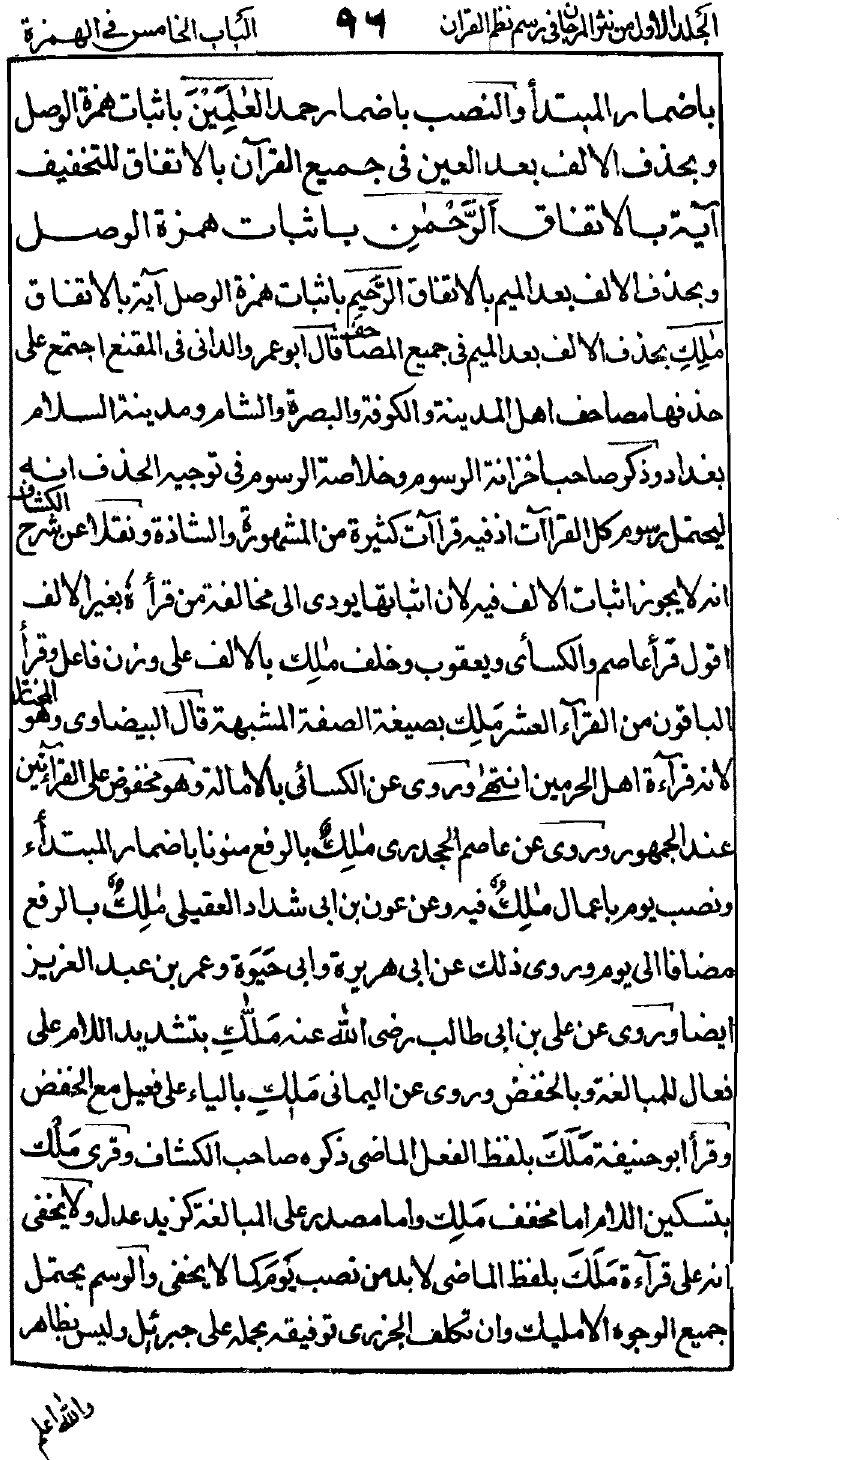 المجلد الاول من نثر المرجان فى رسم نظم القران ٩٦ الباب الخامس فى الهمزة
باضمار المبتدأ والنصب باضمار حمد العٰلَمِيْنَ باثبات همزة الوصل
وبحذف الالف بعد العين فى جميع القرآن بالاتفاق للتخفيف
آية بالاتفاق اَلرَّحْمٰنِ باثبات همزة الوصل
وبحذف الالف بعد الميم بالاتفاق الرَّحِيمِ باثبات همزة الوصل آية بالاتفاق
مٰلِكِ بحذف الالف بعد الميم فى جميع المصاحف قال ابوعمرو الدانى فى المقنع اجتمع على
حذفها مصاحف اهل المدينة والكوفة والبصرة والشام ومدينة السلام
بغداد وذكر صاحبا خزانة الرسوم وخلاصة الرسوم فى توجيه الحذف انه
ليحتمل رسوم كل القراآت اذ فيه قراآت كثيرة من المشهورة والشاذة ونقلا عن شرح الكشاف
انه لا يجوز اثبات الالف فيه لان اثباتها يودى الى مخالفة من قرأه بغير الالف
اقول قرأ عاصم والكسائى ويعقوب وخلف مٰلِك بالالف على وزن فاعل وقرأ
الباقون من القرآء العشر مَلِكِ بصيغة الصفة المشبهة قال البيضاوى وهو المختار
لانه قرآءة اهل الحرمين انتهىٰ وروى عن الكسائى بالامالة وهو مخفوض على القرائتين
عند الجمهور وروى عن عاصم الجحدرى مٰلِكٌ بالرفع منونا باضمار المبتدأء
ونصب يوم باعمال مٰلِكٌ فيه وعن عون بن ابى شداد العقيلى مٰلِكُ بالرفع
مضافا الى يوم وروى ذلك عن ابى هريرة وابى حَيَوَة وعمر بن عبد العزيز
ايضا وروى عن على بن ابى طالب رضى الله عنه مَلّٰكِ بتشديد اللام على
فعال للمبالغة وبالخفض وروى عن اليمانى مَلِيكِ بالياء على فعيل مع الخفض
وقرأ ابوحنيفة مَلَكَ بلفظ الفعل الماضى ذكره صاحب الكشاف وقرى مَلْك
بتسكين اللام اما مخفف مَلِك واما مصدر على المبالغة كزيد عدل ولا يخفى
انه على قرآءة مَلَكَ بلفظ الماضى لا بد من نصب يَوْمَ كما لا يخفى والرسم يحتمل
جميع الوجوه الا مليك وان تكلف الجزرى توفيقه بحمله على جبرئيل وليس بظاهر
والله اعلم